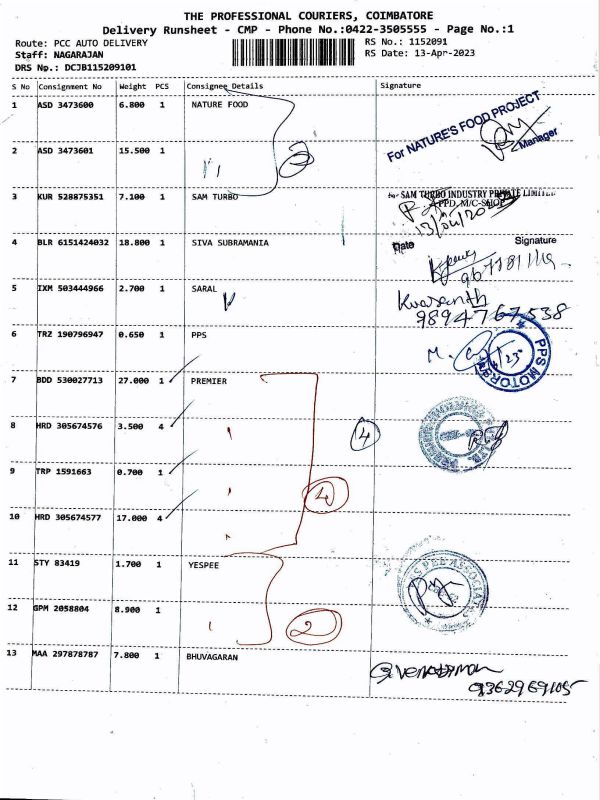 THE PROFESSIONAL COURIERS, COIMBATORE
Delivery Runsheet - CMP - Phone No.:0422-3505555 - Page No.:1
Route: PCC AUTO DELIVERY
RS No.: 1152091
Staff: NAGARAJAN
RS Date: 13-Apr-2023
DRS Np.: DCJB115209101
S No Consignment No Weight PCS Consignee Details Signature
1 ASD 3473600 6.800 1 NATURE FOOD
For NATURE'S FOOD PROJECT
Manager
2 ASD 3473601 15.500 1
2
3 KUR 528875351 7.100 1 SAM TURBO
SAM TURBO INDUSTRY PRIVATE LIMITED
APPD. M/C-SHOP
4 BLR 6151424032 18.800 1 SIVA SUBRAMANIA
Date Signature
5 IXM 503444966 2.700 1 SARAL
Kvasanth
9894767538
6 TRZ 190796947 0.650 1 PPS
PPS MOTORS
7 BDD 530027713 27.000 1 PREMIER
8 HRD 305674576 3.500 4
4
9 TRP 1591663 0.700 1
4
10 HRD 305674577 17.000 4
11 STY 83419 1.700 1 YESPEE
12 GPM 2058804 8.900 1
2
13 MAA 297878787 7.800 1 BHUVAGARAN
9362969105